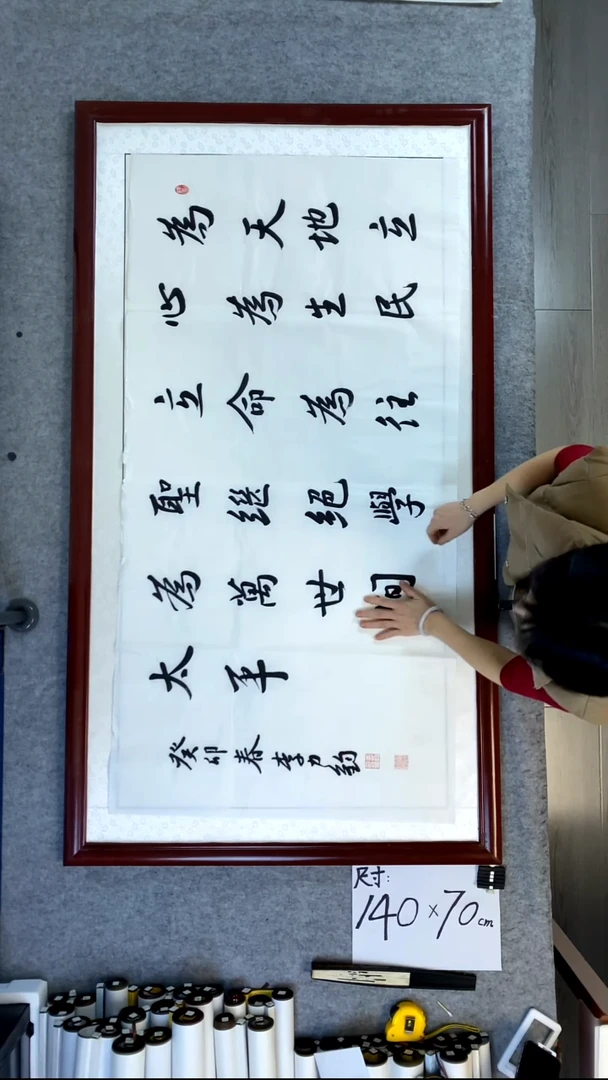 為天地立
心為生民
立命為往
聖继絕學
為萬世
太平
癸卯春李力
尺寸:
140×70cm